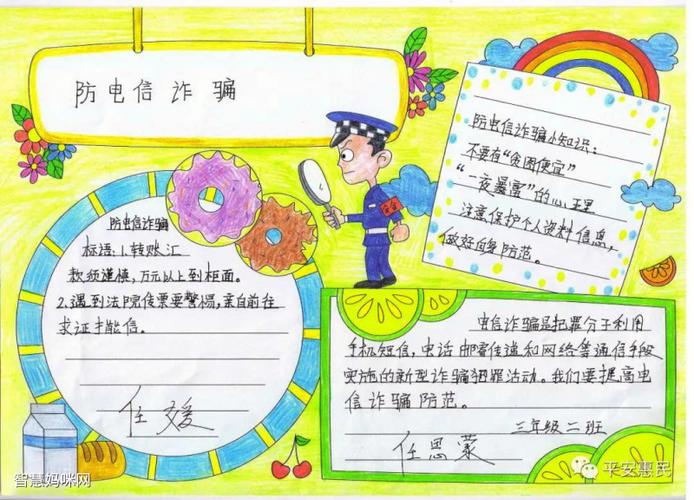 防电信诈骗
防电信诈骗小知识:
不要有“贪图便宜”
“一夜暴富”的心理
注意保护个人资料信息,
做好自身防范。
防电信诈骗
标语:1.转账汇
款须谨慎,万元以上到柜面。
2.遇到法院传票要警惕,亲自前往
求证才能信。
任媛
电信诈骗是犯罪分子利用
手机短信,电话邮寄传递和网络等通信手段
实施的新型诈骗犯罪活动。我们要提高电
信诈骗防范。
三年级二班
任思蒙
智慧妈咪网
平安惠民